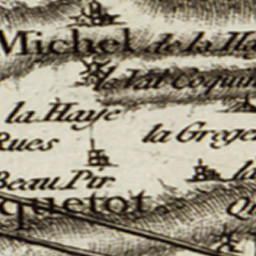 Michel de la Ha
le Val Coquin
la Haye
la Grege
Rues
Beau Pir
la
quetot